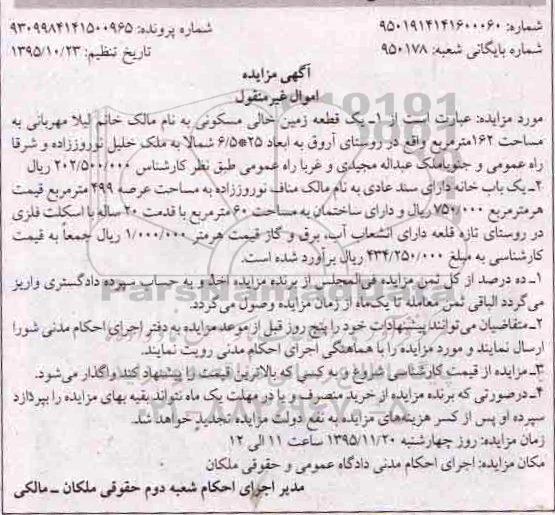 شماره: ۹۵۰۱۹۱۴۱۴۱۶۰۰۰۶۰
شماره پرونده: ۹۳۰۹۹۸۴۱۴۱۵۰۰۹۶۵
شماره بایگانی شعبه: ۹۵۰۱۷۸
تاریخ تنظیم: ۱۳۹۵/۱۰/۲۳
آگهی مزایده
اموال غیرمنقول
مورد مزایده: عبارت است از ۱ـ یک قطعه زمین خالی مسکونی به نام مالک خانم لیلا مهربانی به
مساحت ۱۶۲مترمربع واقع در روستای آروق به ابعاد ۲۵*۶/۵ شمالا به ملک خلیل نوروززاده و شرقا
راه عمومی و جنوباملک عبداله مجیدی و غربا راه عمومی طبق نظر کارشناس ۲۰۲/۵۰۰/۰۰۰ ریال
۲ـ یک باب خانه دارای سند عادی به نام مالک مناف نوروززاده به مساحت عرصه ۴۹۹مترمربع قیمت
هرمترمربع ۷۵۰/۰۰۰ریال و دارای ساختمان به مساحت ۶۰مترمربع با قدمت ۲۰ساله با اسکلت فلزی
در روستای تازه قلعه دارای انشعاب آب، برق و گاز قیمت هرمتر ۱/۰۰۰/۰۰۰ ریال جمعاً به قیمت
کارشناسی به مبلغ ۴۳۴/۲۵۰/۰۰۰ ریال برآورد شده است.
۱ـ ده درصد از کل ثمن مزایده فی‌المجلس از برنده مزایده اخذ و به حساب سپرده دادگستری واریز
می‌گردد الباقی ثمن معامله تا یک‌ماه از زمان مزایده وصول می‌گردد.
۲ـ متقاضیان می‌توانند پیشنهادات خود را پنج روز قبل از موعد مزایده به دفتر اجرای احکام مدنی شورا
ارسال نمایند و مورد مزایده را با هماهنگی اجرای احکام مدنی رویت نمایند.
۳ـ مزایده از قیمت کارشناسی شروع و به کسی که بالاترین قیمت را پیشنهاد کند واگذار می‌شود.
۴ـ درصورتی که برنده مزایده از خرید منصرف و یا در مهلت یک ماه نتواند بقیه بهای مزایده را بپردازد
سپرده او پس از کسر هزینه‌های مزایده به نفع دولت مزایده تجدید خواهد شد.
زمان مزایده: روز چهارشنبه ۱۳۹۵/۱۱/۲۰ ساعت ۱۱ الی ۱۲
مکان مزایده: اجرای احکام مدنی دادگاه عمومی و حقوقی ملکان
مدیر اجرای احکام شعبه دوم حقوقی ملکان ــ مالکی